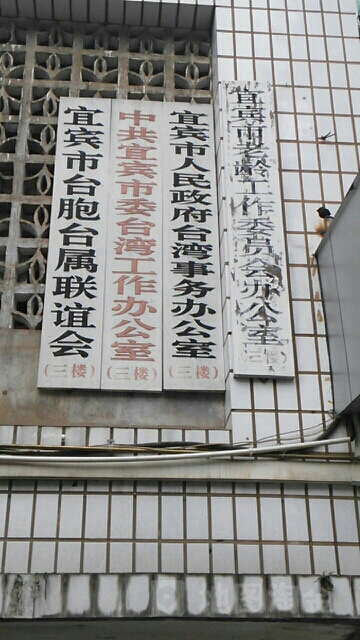 宜宾市台胞台属联谊会
(三楼)
中共宜宾市委台湾工作办公室
(三楼)
宜宾市人民政府台湾事务办公室
(三楼)
宜宾市老龄工作委员会办公室
(三楼)